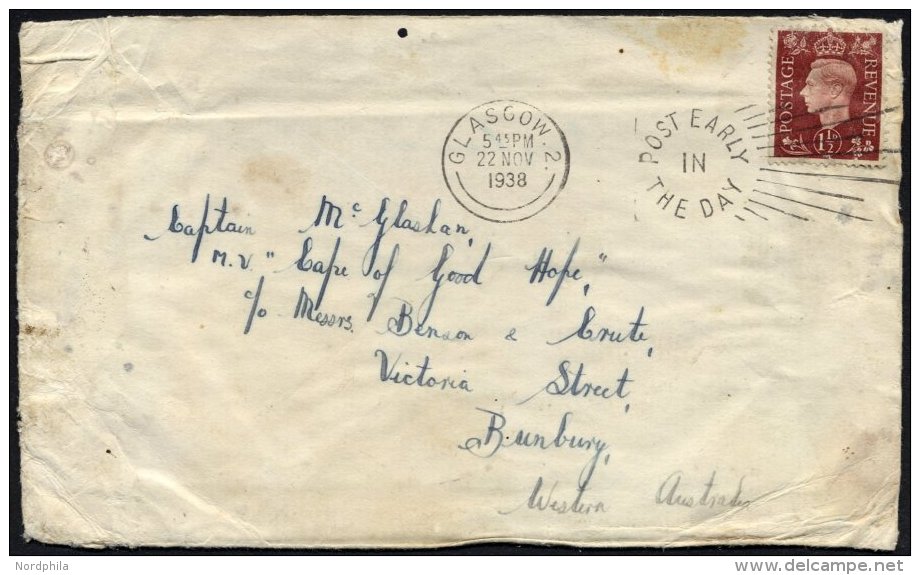 POSTAGE REVENUE
1½D
GLASGOW. 2.
5 45 PM
22 NOV
1938
POST EARLY
IN
THE DAY
Captain Mc Glashan,
M.V. "Cape of Good Hope,"
c/o Messrs. Benson & Crute,
Victoria Street,
Bunbury,
Western Australia
Nordphila
www.delcampe.net